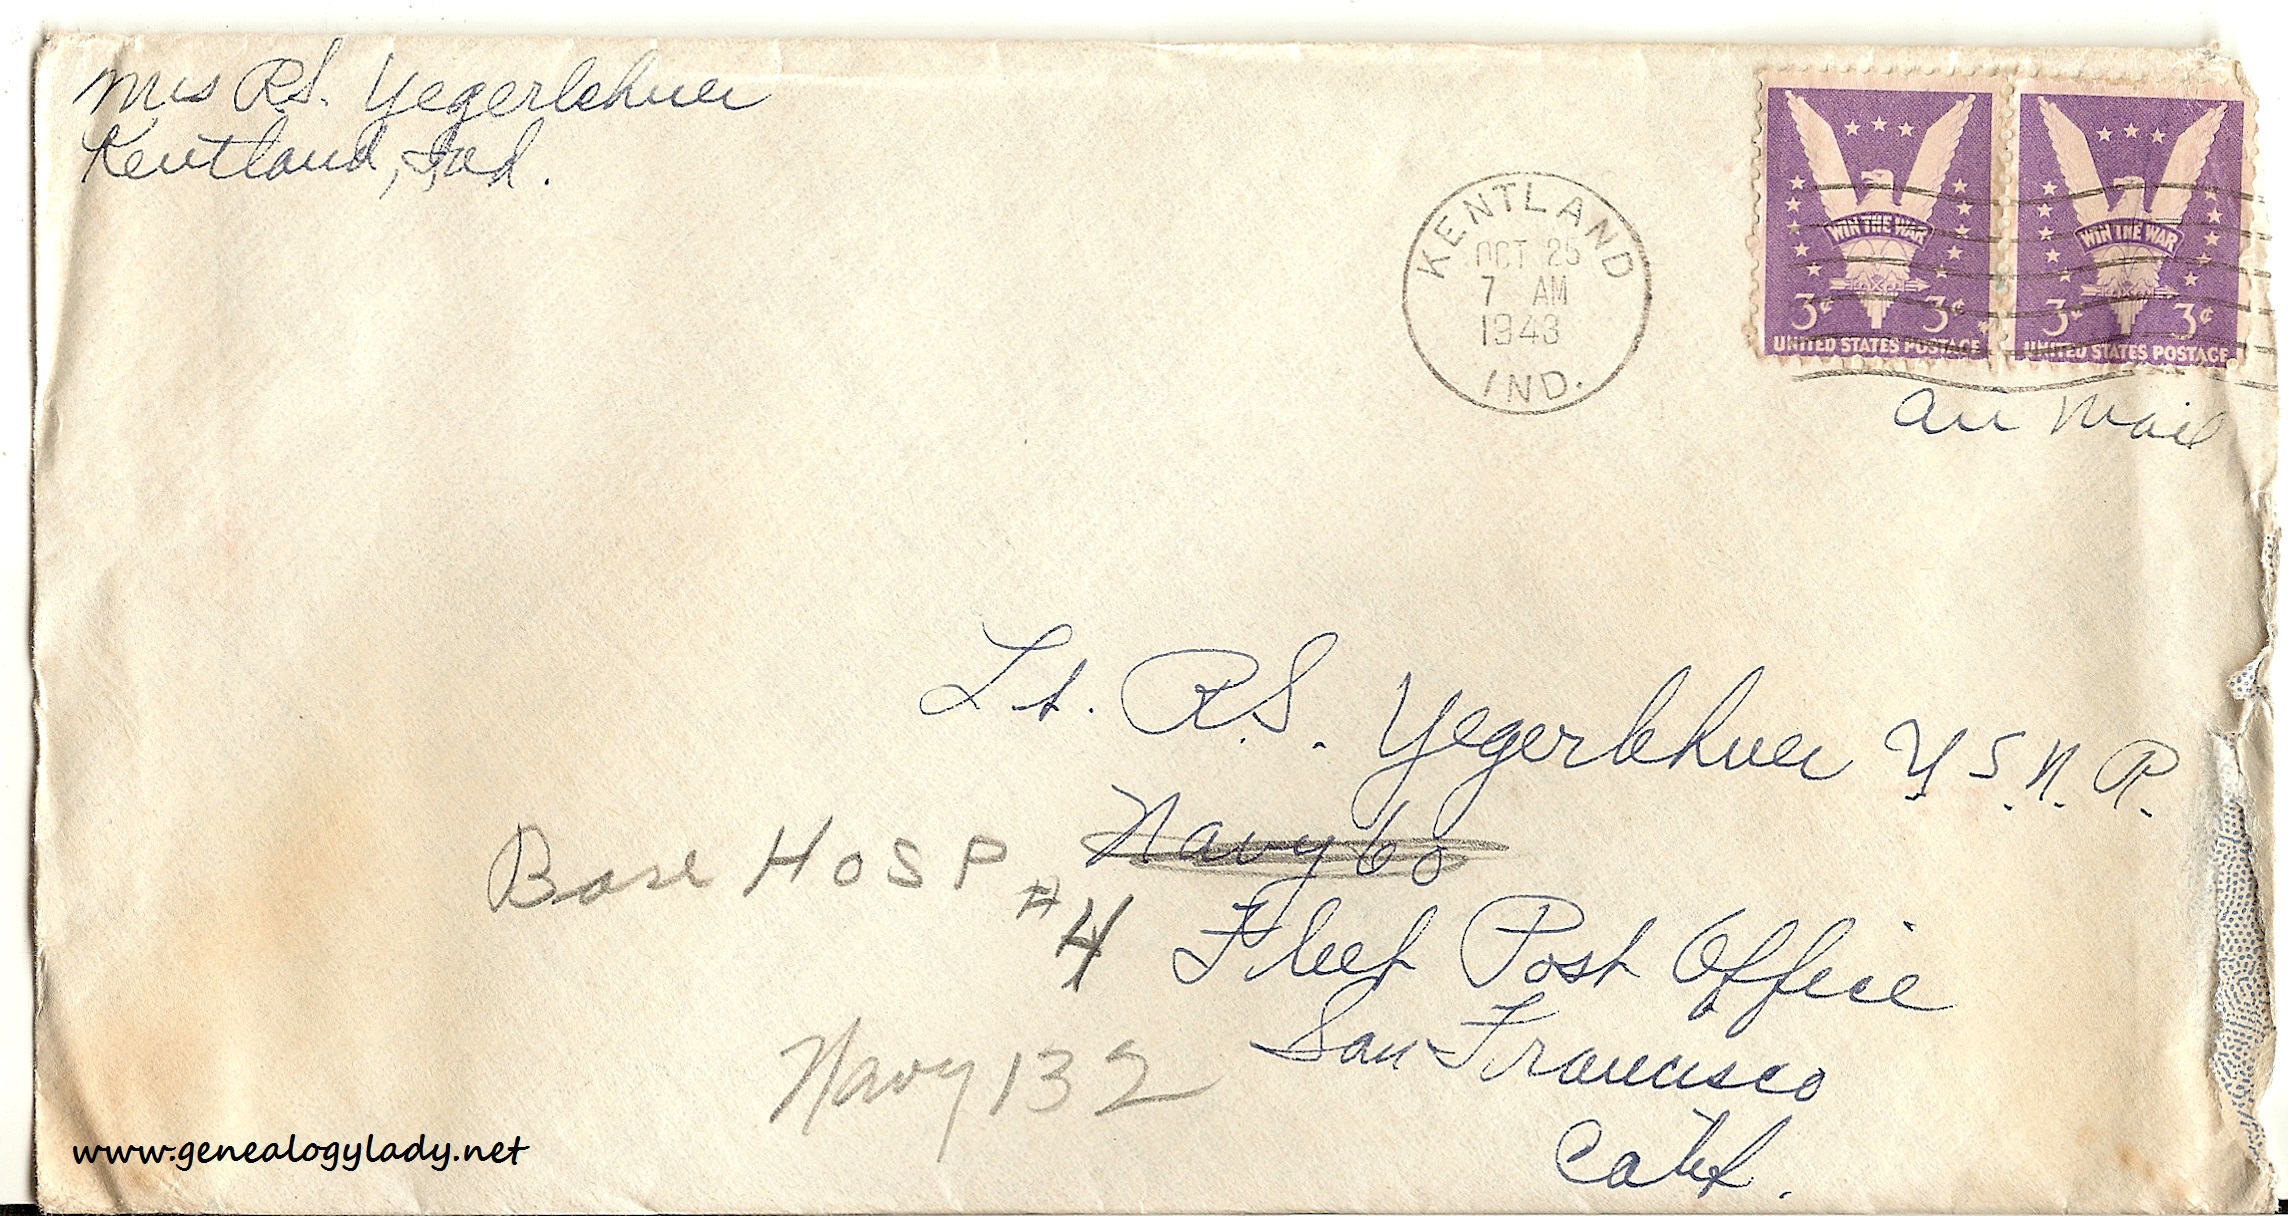 Mrs R.S. Yegerlehner
Kentland, Ind.
KENTLAND
OCT 25
7 AM
1943
IND.
WIN THE WAR
3¢ 3¢
UNITED STATES POSTAGE
WIN THE WAR
3¢ 3¢
UNITED STATES POSTAGE
Air Mail
Lt. R.S. Yegerlehner U.S.N.R.
Navy 60
Base HOSP # 4
Fleet Post Office
San Francisco
Calif.
Navy 132
www.genealogylady.net